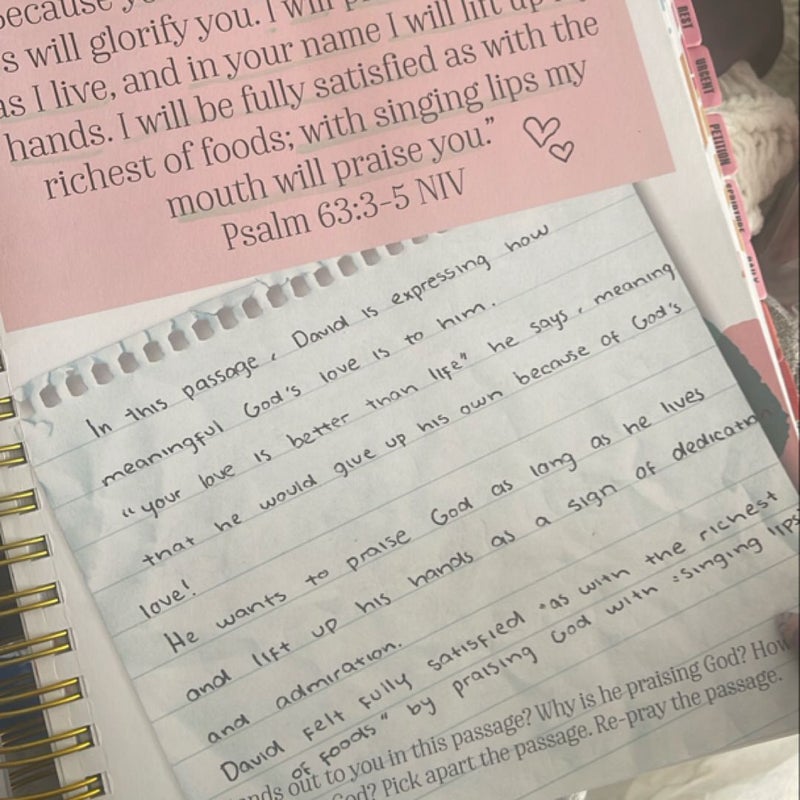 because
s will glorify you. I will
as I live, and in your name I will lift up
hands. I will be fully satisfied as with the
richest of foods; with singing lips my
mouth will praise you."
Psalm 63:3-5 NIV
In this passage, David is expressing how
meaningful God's love is to him.
"your love is better than life" he says, meaning
that he would give up his own because of God's
love!
He wants to praise God as long as he lives
and lift up his hands as a sign of dedication
and admiration.
David felt fully satisfied "as with the richest
of foods" by praising God with "singing lips"
nds out to you in this passage? Why is he praising God? How
God? Pick apart the passage. Re-pray the passage.
REST
URGENT
PETITION
SCRIPTURE
DAILY